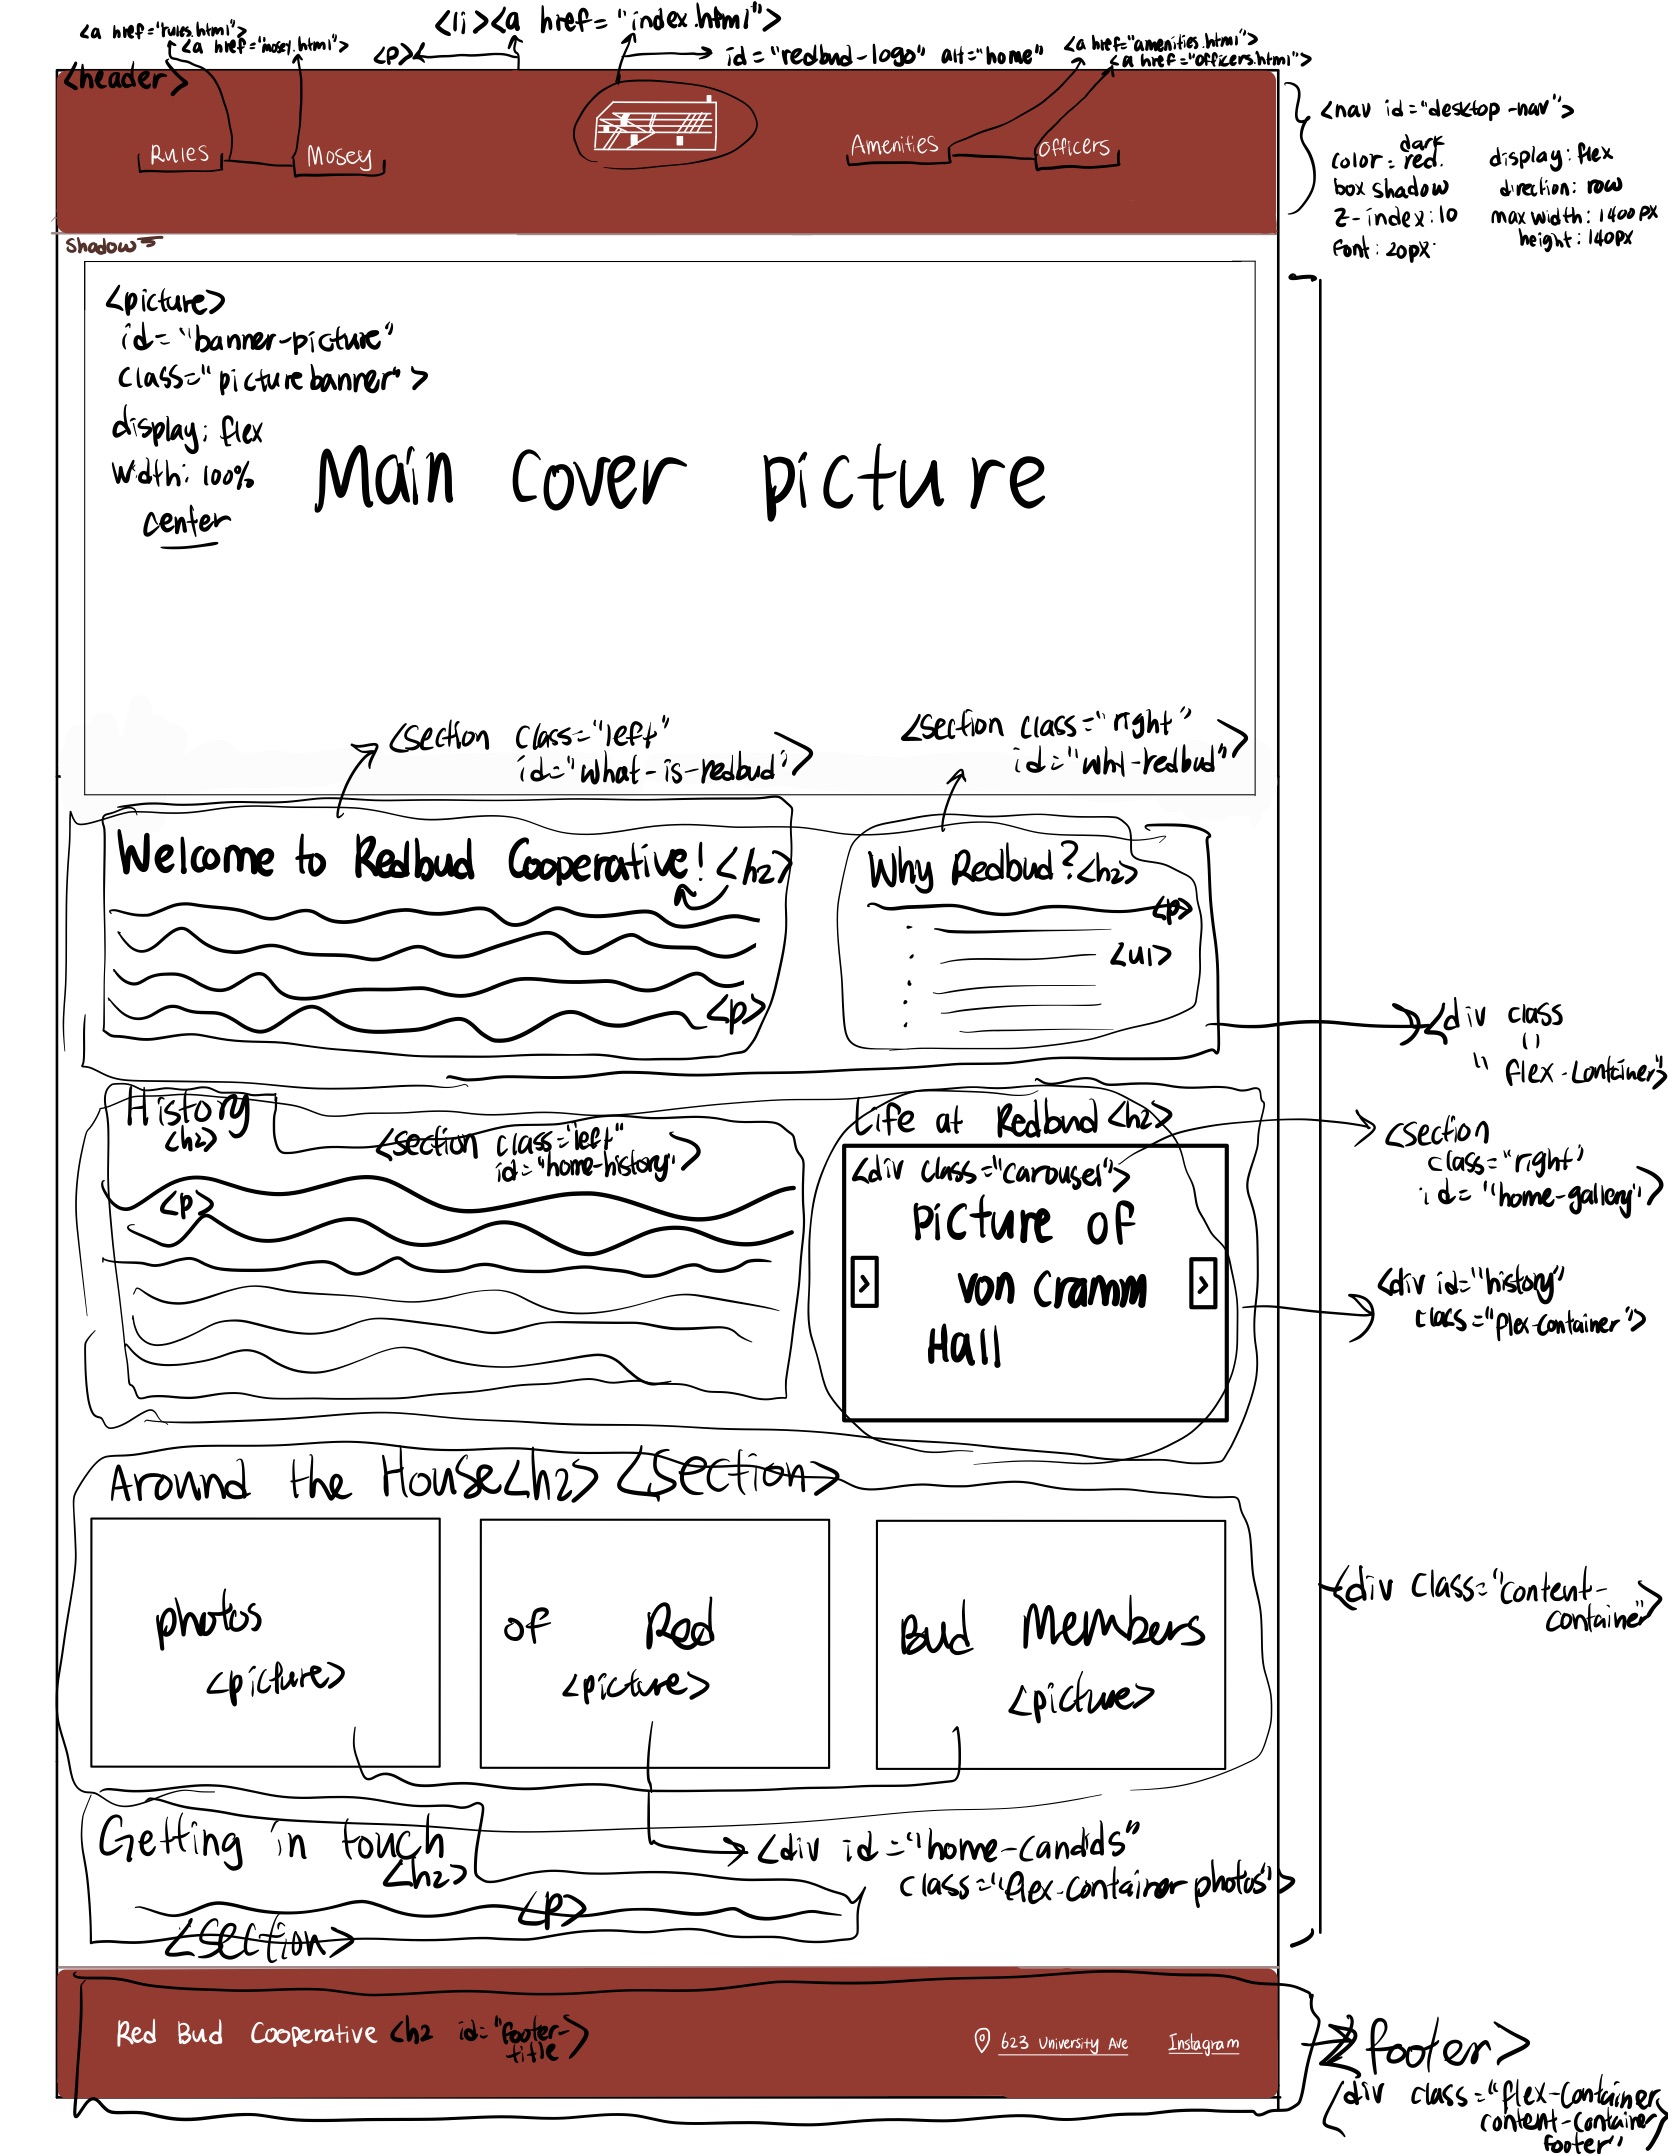 <a href="rules.html">
<a href="mosey.html">
<li><a href="index.html">
<p>
id="redbud-logo" alt="home"
<a href="amenities.html">
<a href="officers.html">
<header>
Rules
Mosey
Amenities
Officers
<nav id="desktop-nav">
color: dark red.
box shadow
z-index:10
font: 20px.
display: flex
direction: row
max width: 1400px
height: 140px
Shadow
<picture>
id="banner-picture"
class="picture banner">
display: flex
width: 100%
center
Main cover picture
<section class="left"
id="what-is-redbud">
<section class="right"
id="why-redbud">
Welcome to Redbud Cooperative! <h2>
<p>
Why Redbud? <h2>
<p>
<ul>
<div class
=
"flex-container">
History
<h2>
<section class="left"
id="home-history">
<p>
Life at Redbud <h2>
<div class="carousel">
Picture of
von Cramm
Hall
>
>
<section
class="right"
id="home-gallery">
<div id="history"
class="flex-container">
Around the House <h2> <section>
photos
<picture>
of Red
<picture>
Bud Members
<picture>
<div class="content-
container">
Getting in touch
<h2>
<p>
<section>
<div id="home-candids"
class="flex-container photos">
Red Bud Cooperative <h2 id="footer-
title">
623 University Ave
Instagram
<footer>
<div class="flex-container
content-container
footer">